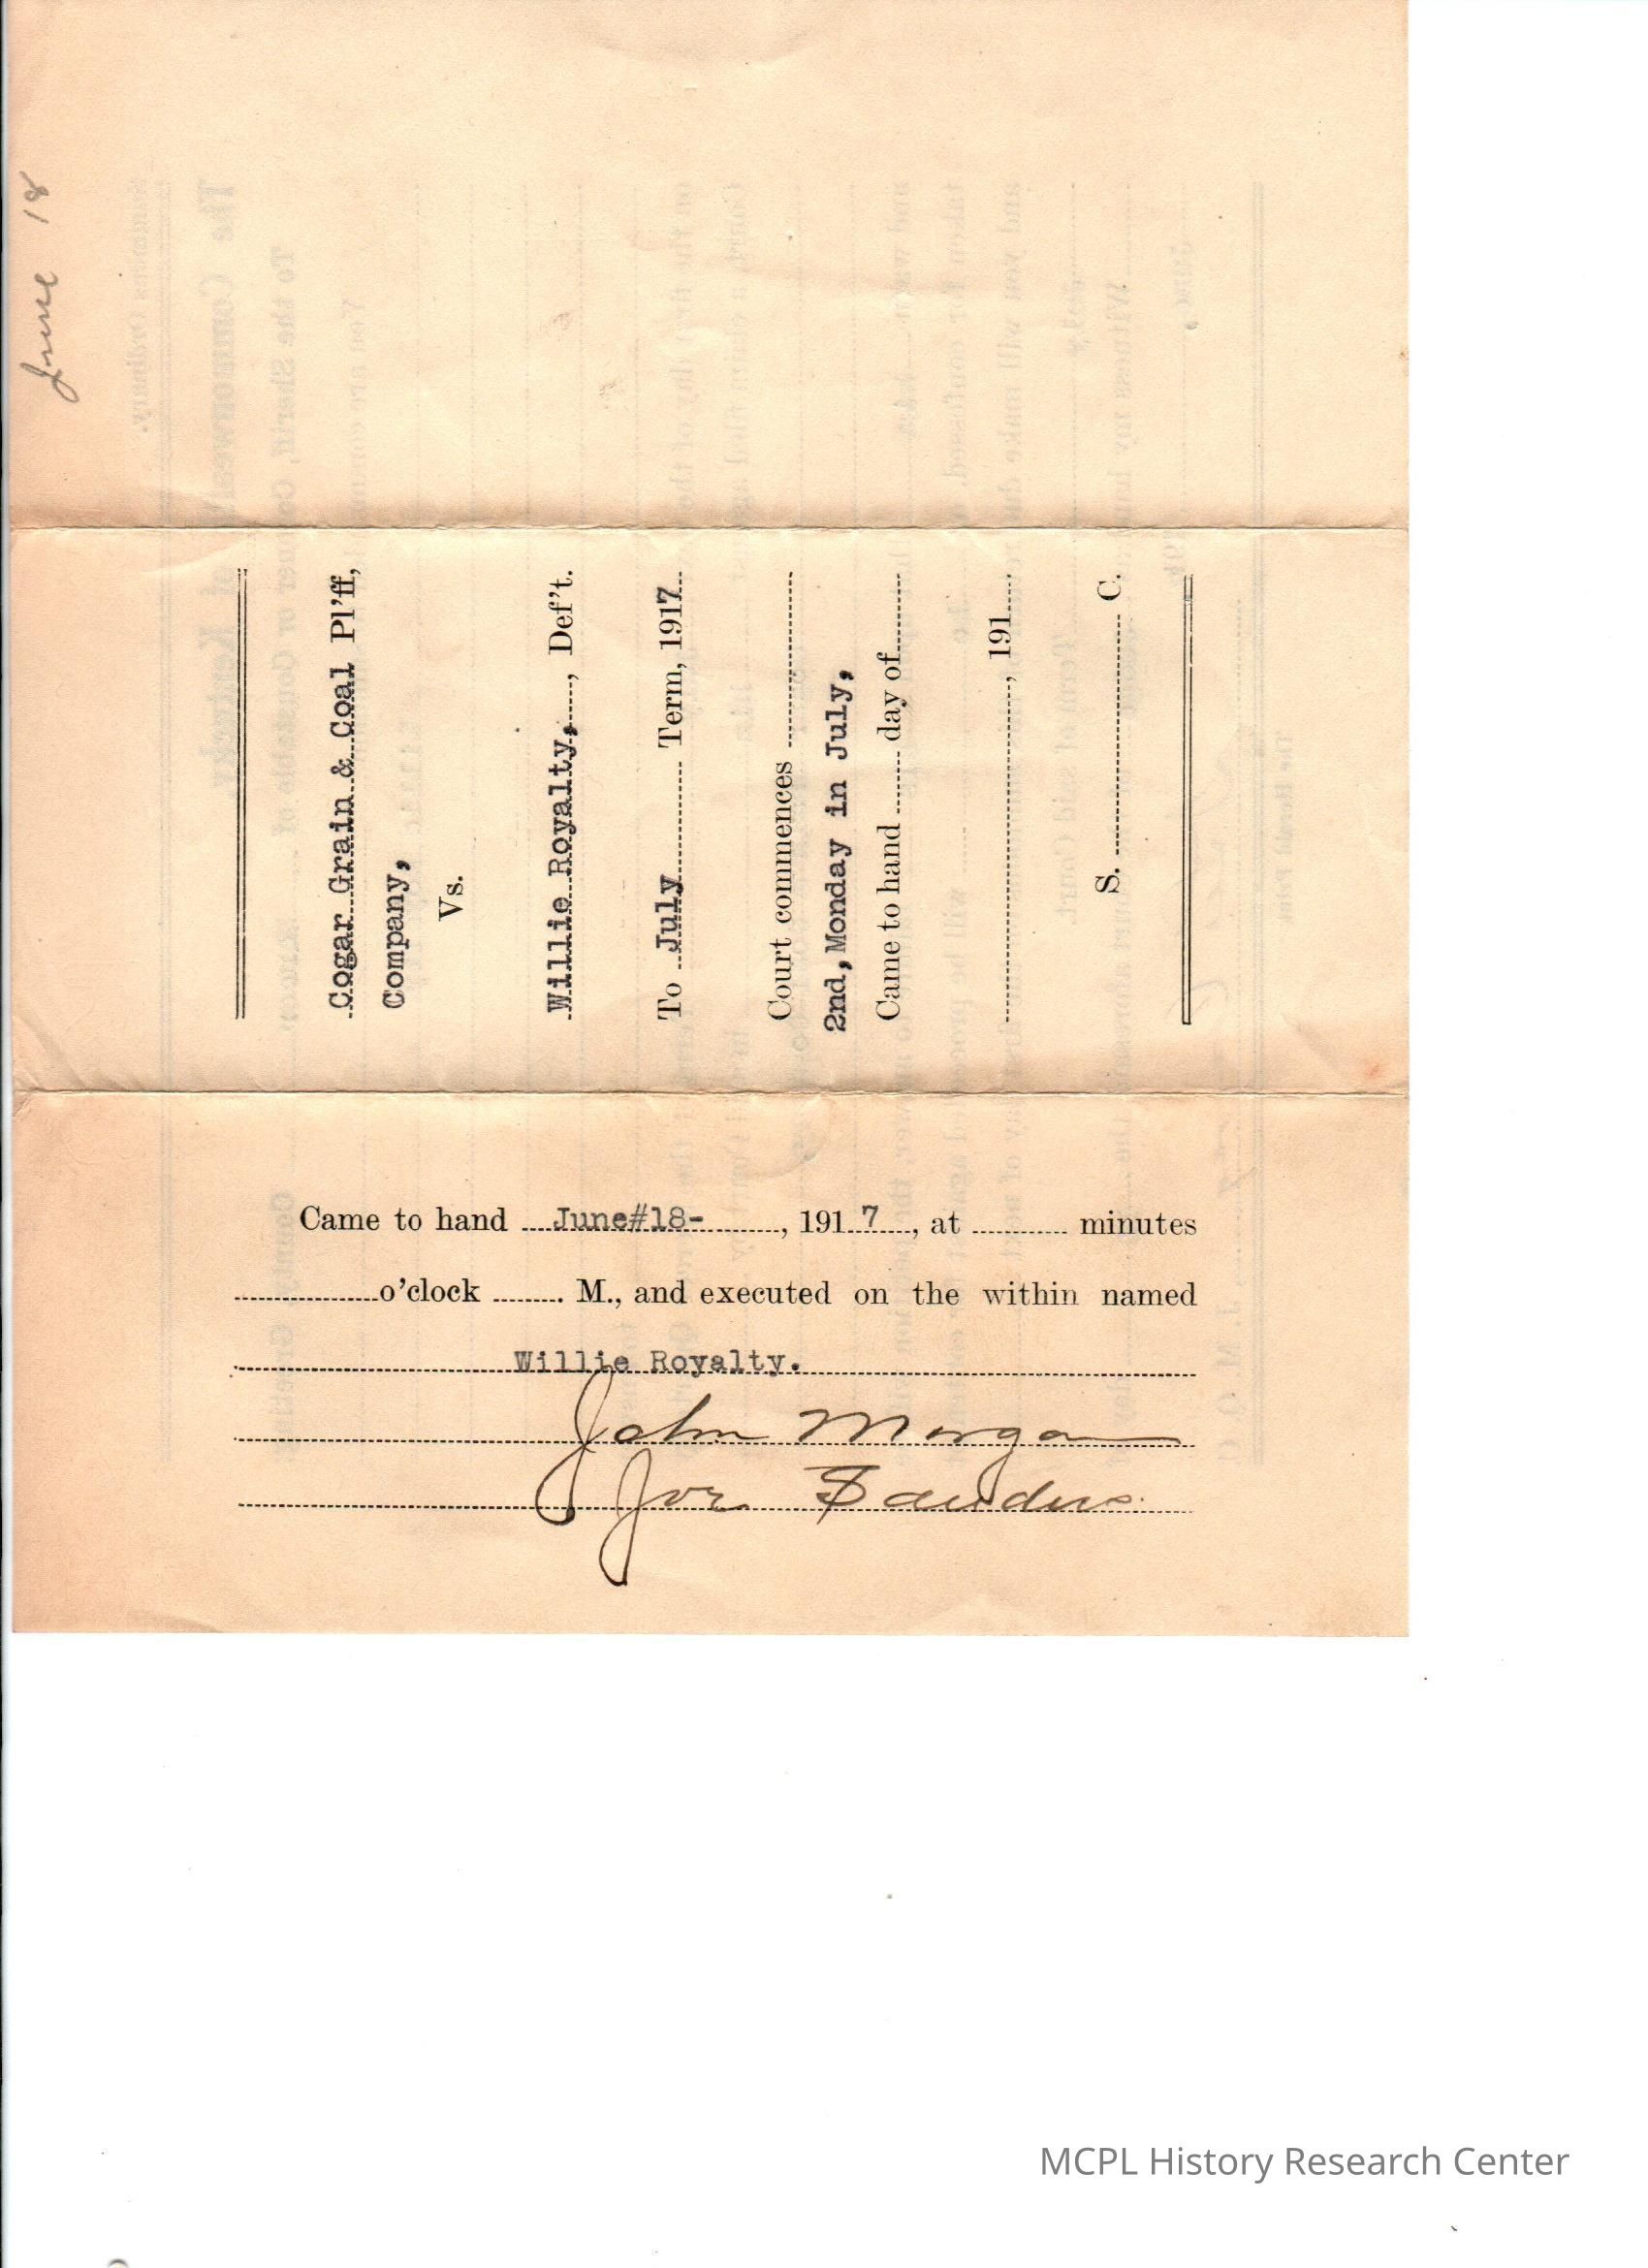 June 18
Cogar Grain & Coal Pl'ff,
Company,
Vs.
Willie Royalty, , Def't.
To July Term, 1917
Court commences
2nd, Monday in July,
Came to hand day of
, 191
S. C.
Came to hand June#18- , 191 7 , at minutes
o'clock M., and executed on the within named
Willie Royalty.
John Morgan
Joe Sanders
MCPL History Research Center